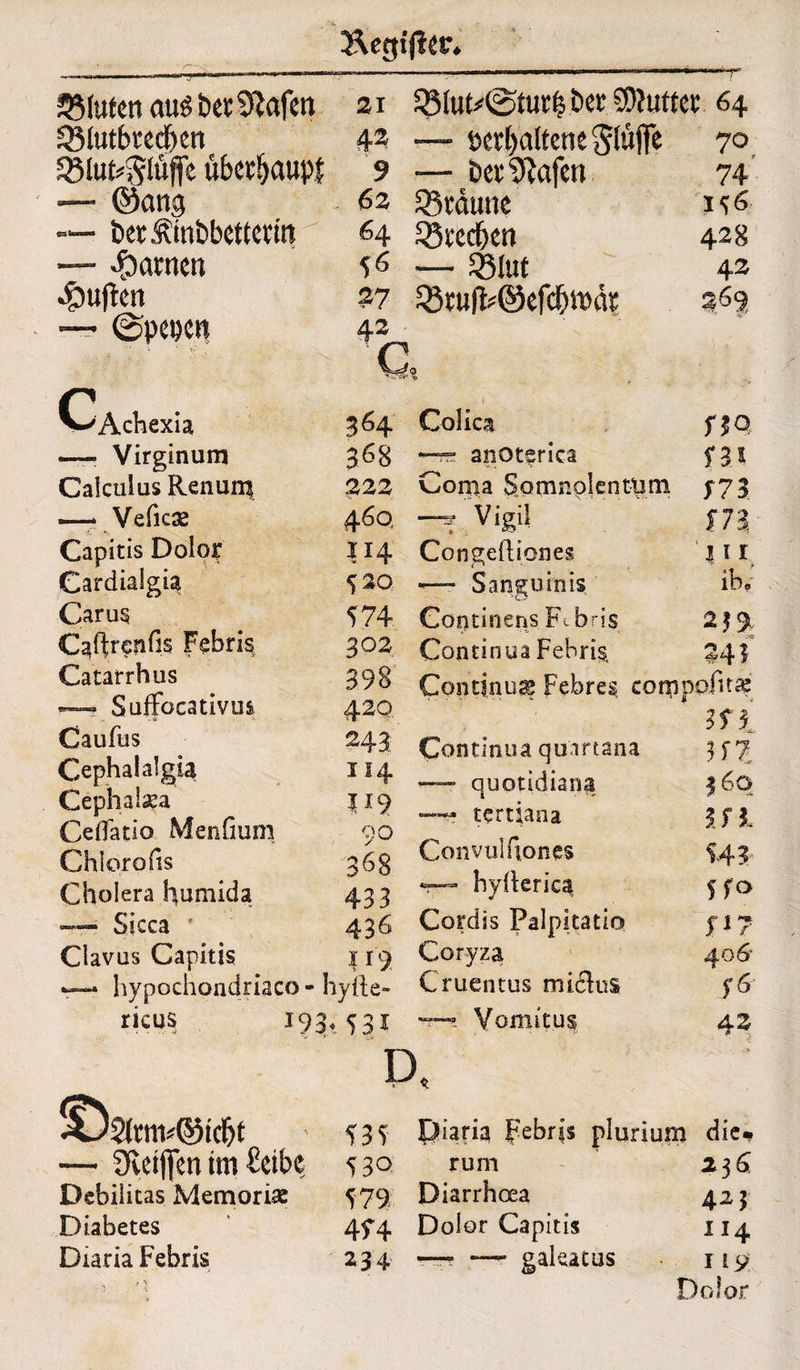 Register.
Bluten aus der Nasen 21
Blutbrechen 42
Blut-Flüsse überhaupt 9
— Gang 62
— der Kindbetterin 64
— Harnen 56
Husten 27
— Speyen 42
Blut-Sturtz der Mutter 64
— verhaltene Flüsse 70
— der Nasen 74
Bräune 156
Brechen 428
— Blut 42
Brust-Geschwär 369
C.
CAchexia 364
— Virginum 368
Calculus Renum 222
— Vesicæ 460
Capitis Dolor 114
Cardialgia 520
Carus 574
Castrensis Febris 302
Catarrhus 398
— Suffocativus 420
Causus 243
Cephalalgia 114
Cephalæa 119
Cessatio Mensium 90
Chlorosis 368
Cholera humida 433
— Sicca 436
Clavus Capitis 119
— hypochondriaco-hyste-
ricus 193. 531
Colica 530
— anoterica 531
Coma Somnolentum 573
— Vigil 573
Congestiones 111
— Sanguinis ib.
Continens Febris 239
Continua Febris 243
Continuæ Febres compositæ
353
Continua quartana 357
— quotidiana 360
— tertiana 353
Convulsiones 543
— hysterica 550
Cordis Palpitatio 517
Coryza 406
Cruentus mictus 56
— Vomitus 42
D.
DArm-Gicht 535
— Reissen im Leibe 530
Debilitas Memoriæ 579
Diabetes 454
Diaria Febris 234
Diaria Febris plurium die-
rum 236
Diarrhoea 423
Dolor Capitis 114
— — galeatus 119
Dolor